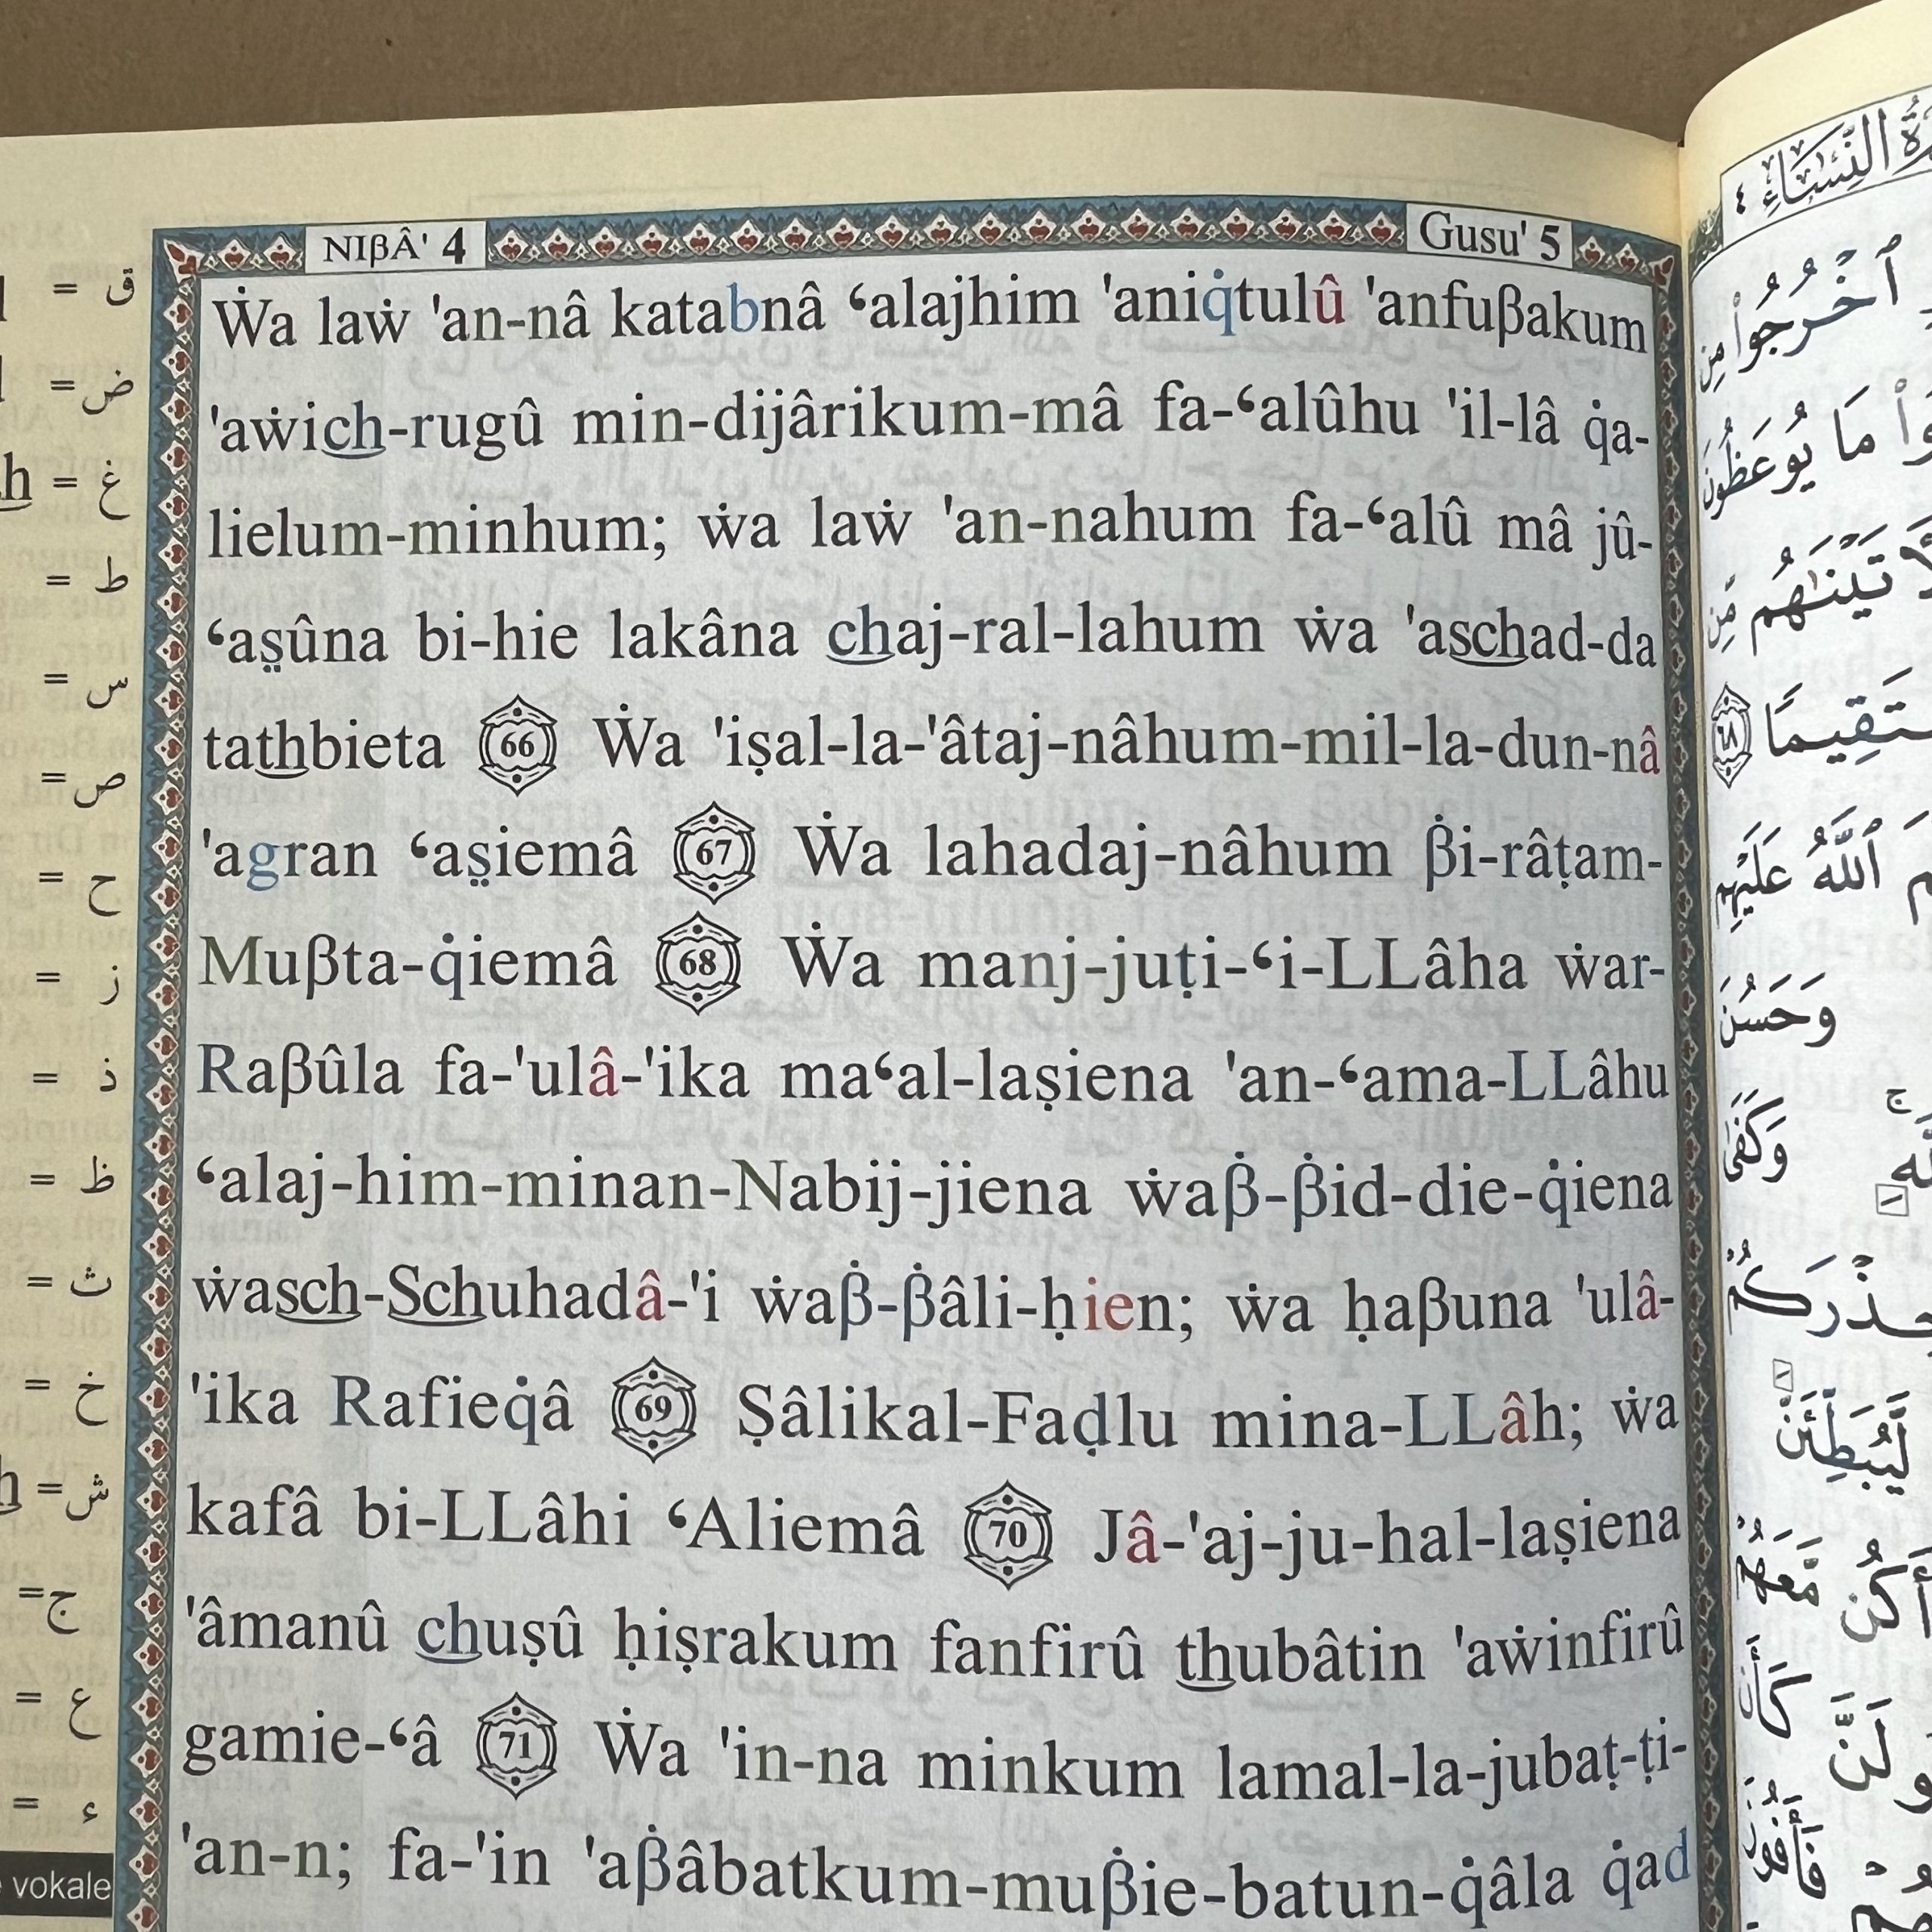 NIβÂ' 4
Gusu' 5
Ẇa laẇ 'an-nâ katabnâ ʻalajhim 'aniq̇tulû 'anfuβakum
'aẇich-rugû min-dijârikum-mâ fa-ʻalûhu 'il-lâ q̇a-
lielum-minhum; ẇa laẇ 'an-nahum fa-ʻalû mâ jû-
ʻaṣ̤ûna bi-hie lakâna chaj-ral-lahum ẇa 'aschad-da
tathbieta 66 Ẇa 'iṣal-la-'âtaj-nâhum-mil-la-dun-nâ
'agran ʻaṣ̤iemâ 67 Ẇa lahadaj-nâhum β̇i-râṭam-
Muβta-q̇iemâ 68 Ẇa manj-juṭi-ʻi-LLâha ẇar-
Raβûla fa-'ulâ-'ika maʻal-laṣiena 'an-ʻama-LLâhu
ʻalaj-him-minan-Nabij-jiena ẇaβ̇-β̇id-die-q̇iena
ẇasch-Schuhadâ-'i ẇaβ̇-β̇âli-ḥien; ẇa ḥaβuna 'ulâ-
'ika Rafieq̇â 69 Ṣâlikal-Faḍlu mina-LLâh; ẇa
kafâ bi-LLâhi ʻAliemâ 70 Jâ-'aj-ju-hal-laṣiena
'âmanû chuṣû ḥiṣrakum fanfirû thubâtin 'aẇinfirû
gamie-ʻâ 71 Ẇa 'in-na minkum lamal-la-jubaṭ-ṭi-
'an-n; fa-'in 'aβ̇âbatkum-muβ̇ie-batun-q̇âla q̇ad
= ق
= ض
h = غ
= ط
= س
= ص
= ح
= ز
= ذ
= ظ
= ث
= خ
h = ش
= ج
= ع
= ء
vokale
النِّسَاءِ ٤
ٱخْرُجُوا۟ مِن
مَا يُوعَظُونَ
تَيْنَٰهُم مِّن
٦٨
ٱللَّهُ عَلَيْهِم
وَحَسُنَ
وَكَفَىٰ
لَّيُبَطِّئَنَّ
أَكُن مَّعَهُمْ
كَأَن